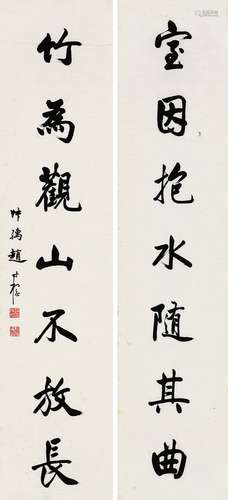 室因抱水隨其曲
竹為觀山不放長
趙